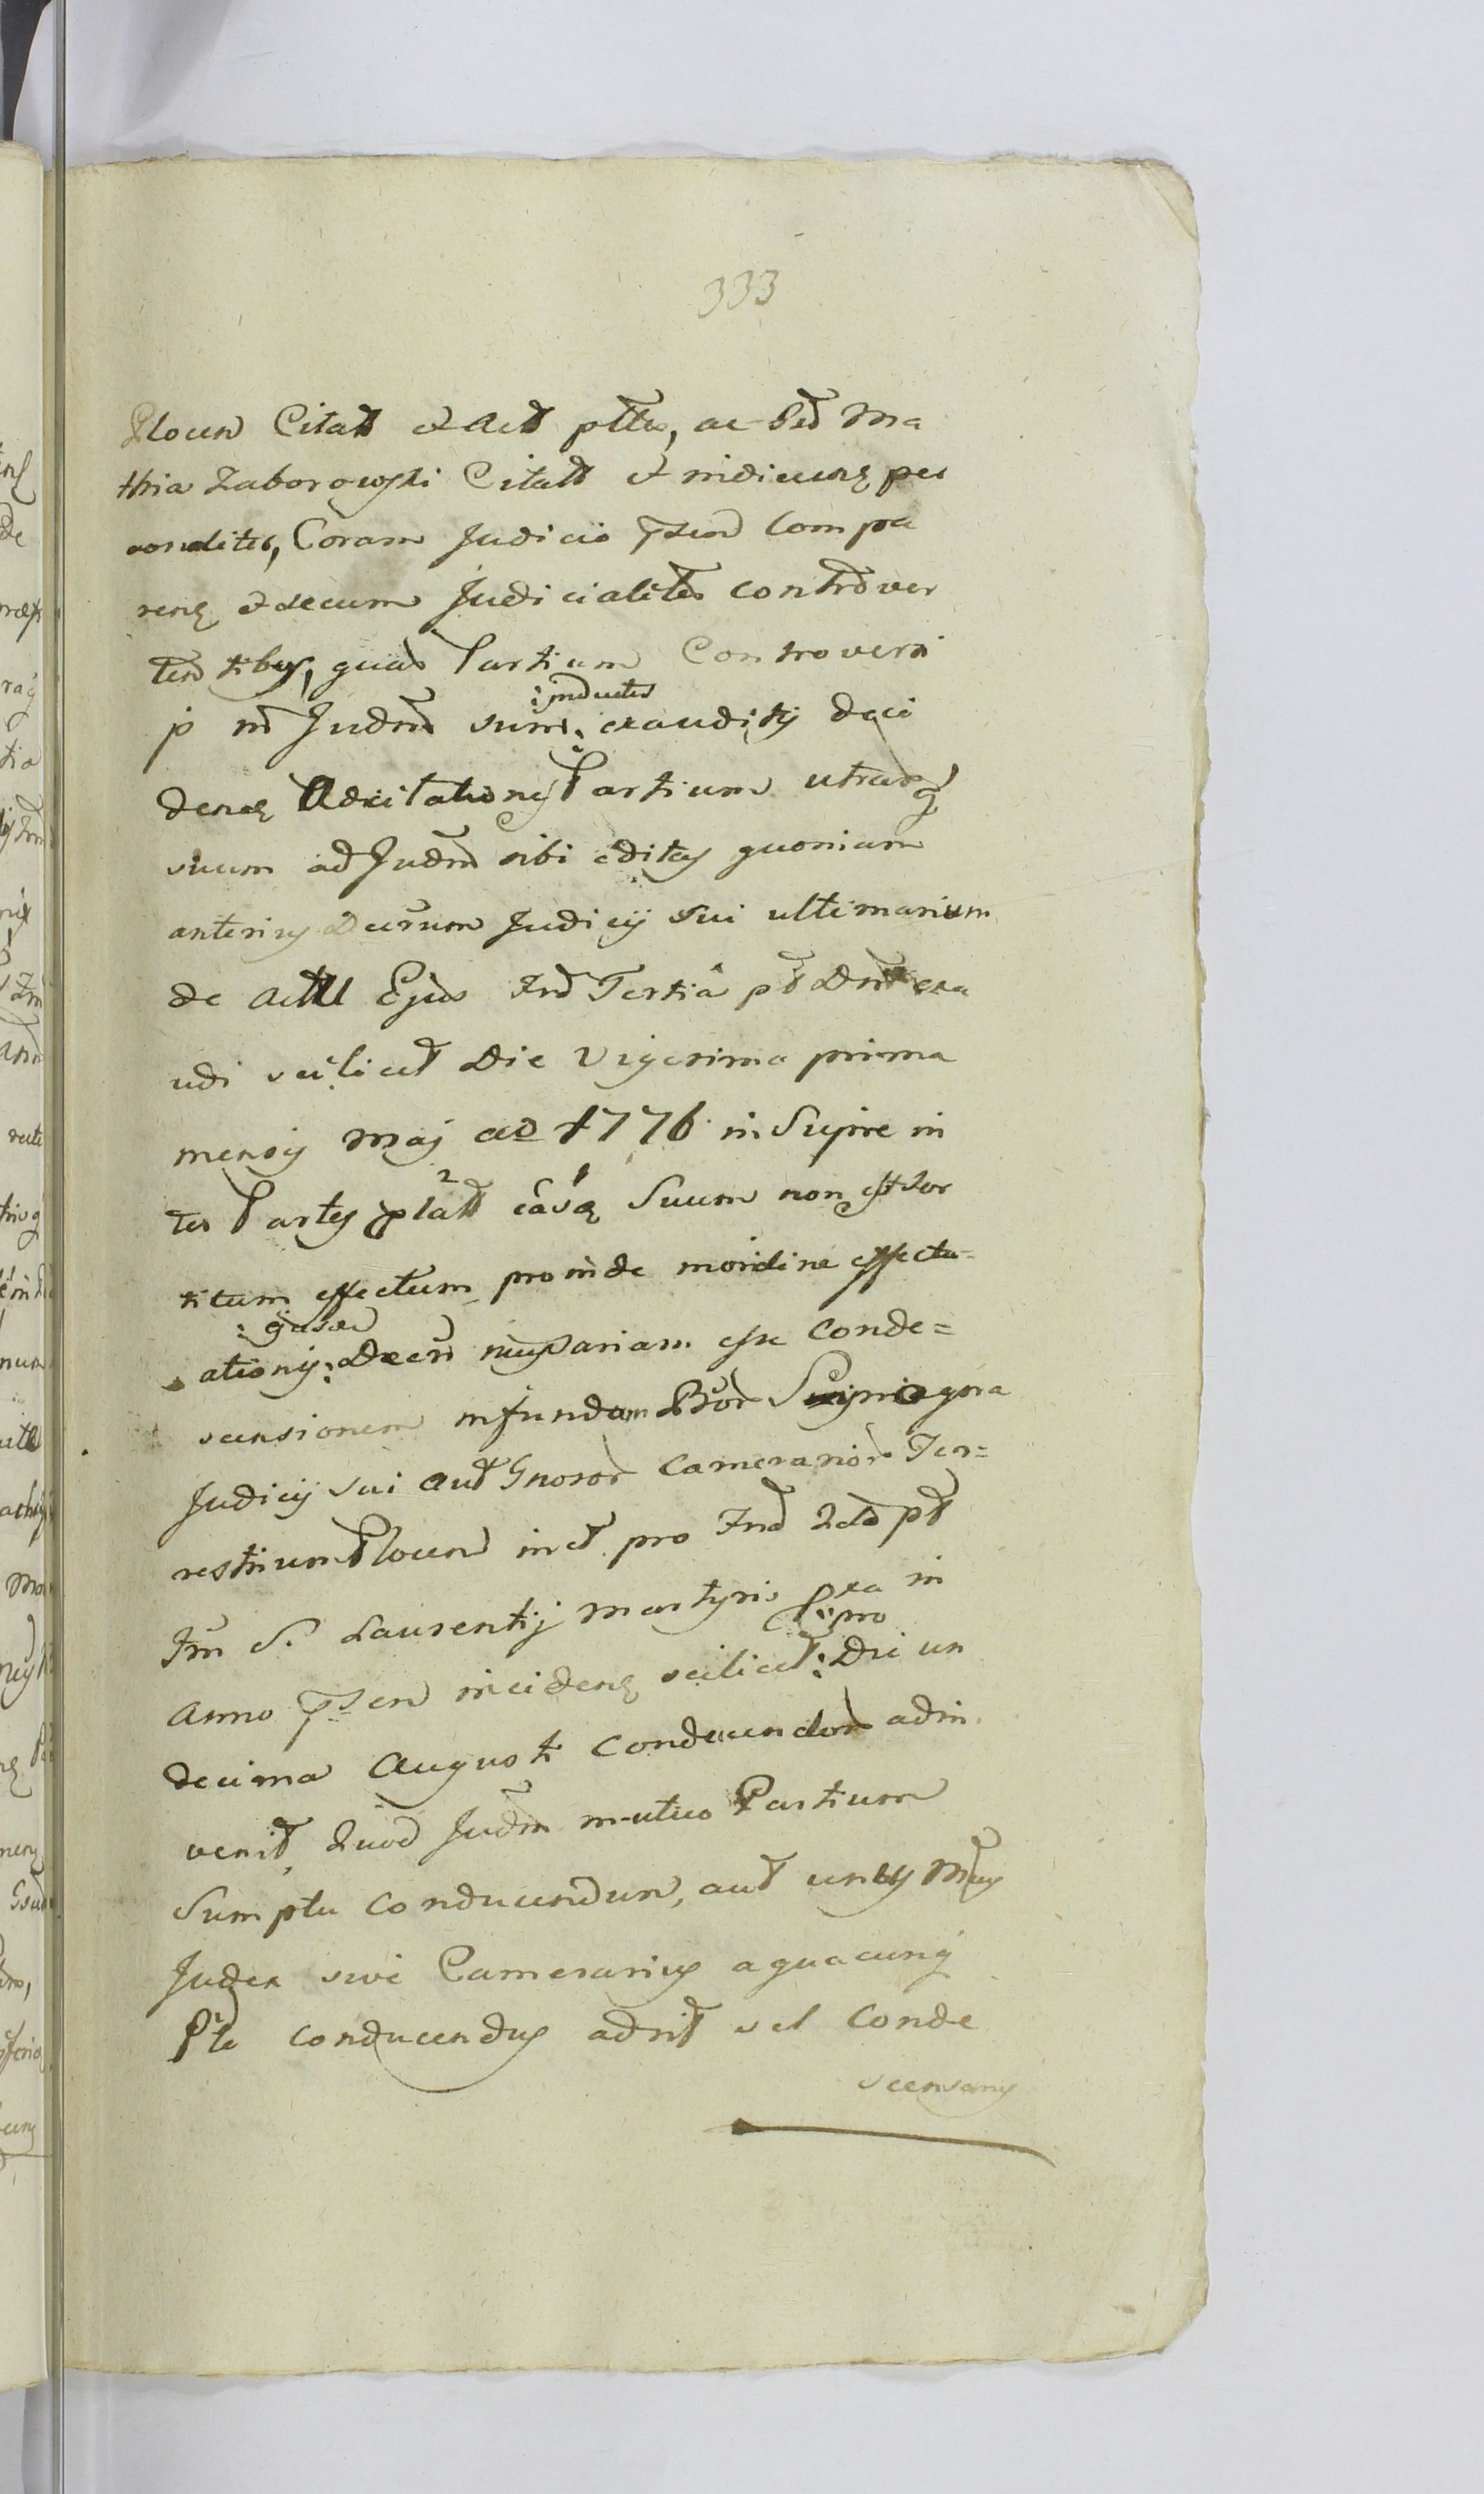 333
Plocen Citat et Act ptte, ac Psd Ma
thia Zaborowski Citat et indicens per
sonaliter, Coram Judicio psen Compa
rens et secum Judicialiter controver
ten tibus, quas Partium Controversi
:inductes
p in Judm sum: exauditis deci
dens Adcitationis Partium utrasq
suum ad Judm sibi editas quoniam
anterius Decrum Judicij sui ultimarium
de actu Ejus Trd Tertia pt Dnt exa
udi scilicet Die Vigesima prima
mensis Maj ao 1776 in Supre in
ter Partes plat eas Suum non est sor
titum effectum proinde in ordine effectu=
:quasd
ationis: Decri necessariam esse Conde=
scensionem in fundum Bor
Judicij sui aut Gnosor Camerarior Ter=
restrium Plocen inct pro Trd 2da pt
Fm S. Laurentij Martyris in
:pro
Anno psen incidens scilicet: Die un
decima Augusti Conducendor adin
venit, Quod Judm mutuo Partium
Sumptu Conducendum, aut unus
Judex sive Camerarius a quacunq
Pte conducendus adrit vel Conde
scensans